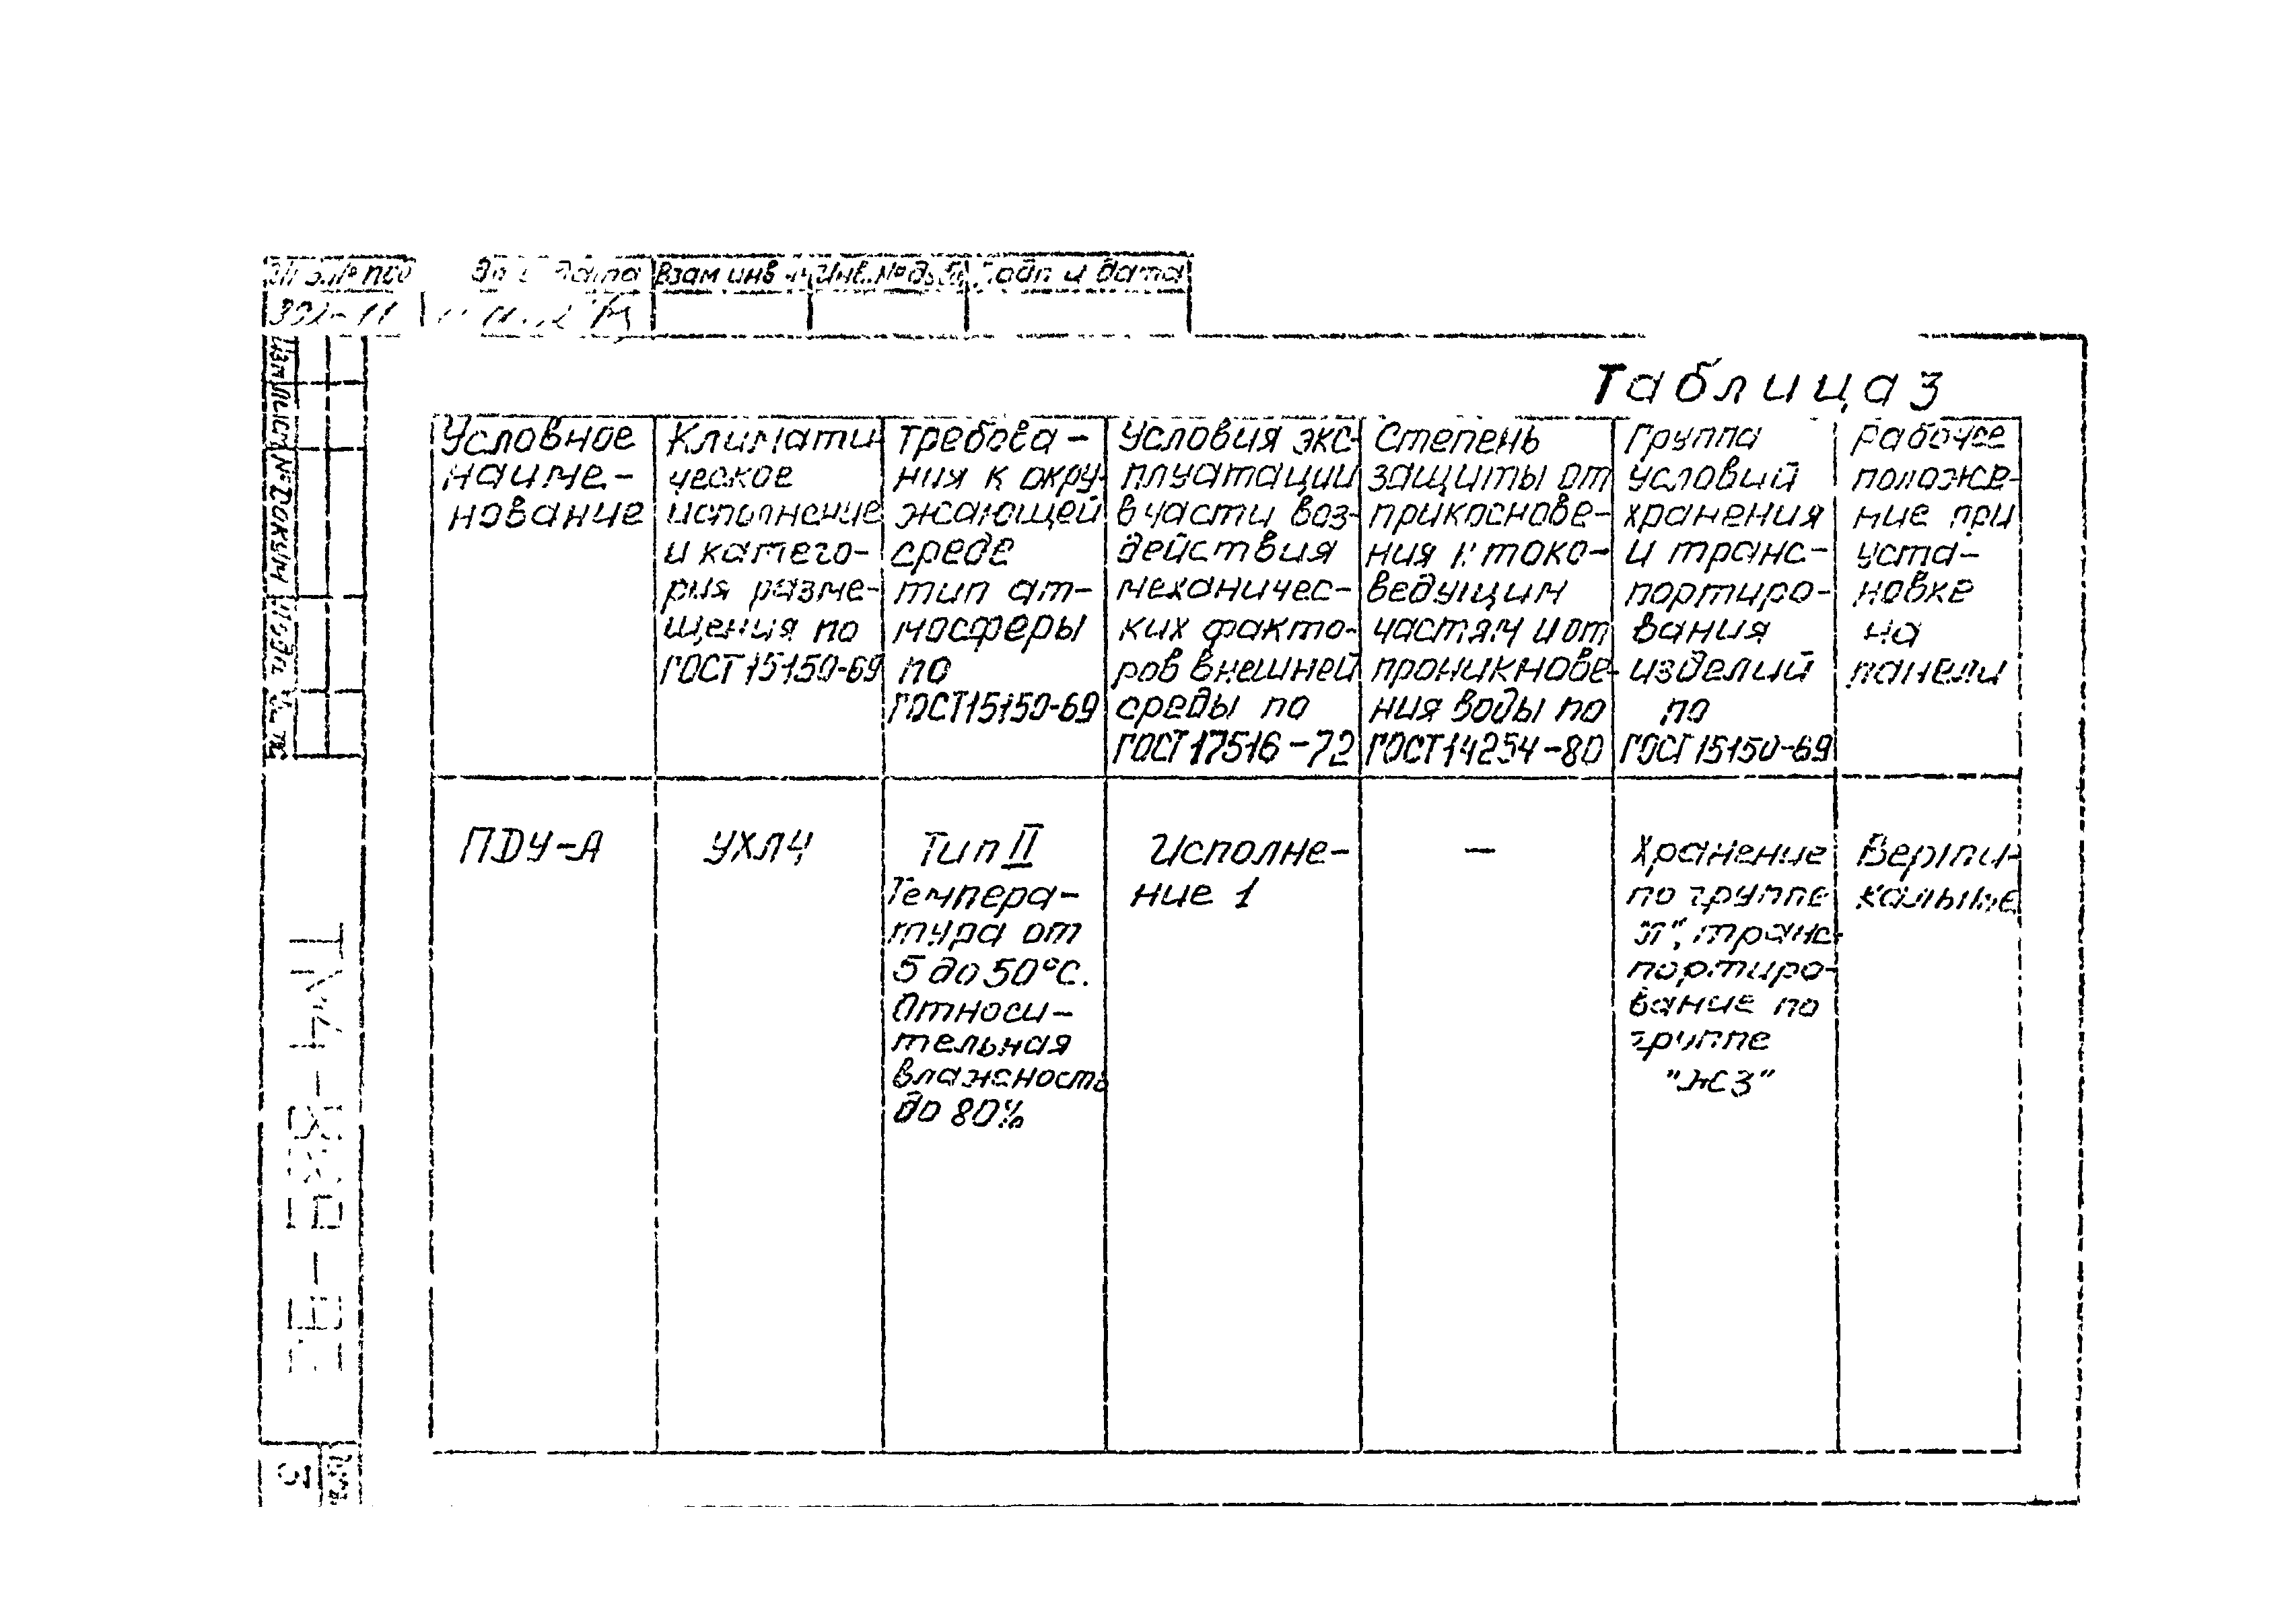 Взам инв
Инв.№
Подп и дата
Таблица 3
Условное
наиме-
нование
Климати-
ческое
исполнение
и катего-
рия разме-
щения по
ГОСТ 15150-69
Требова-
ния к окру-
жающей
среде
тип ат-
мосферы
по
ГОСТ 15150-69
Условия экс-
плуатации
в части воз-
действия
механичес-
ких факто-
ров внешней
среды по
ГОСТ 17516-72
Степень
защиты от
прикоснове-
ния к токо-
ведущим
частям и от
проникнове-
ния воды по
ГОСТ 14254-80
Группа
условий
хранения
и транс-
портиро-
вания
изделий
по
ГОСТ 15150-69
Рабочее
положе-
ние при
уста-
новке
на
панели
ПДУ-А
УХЛ4
Тип II
Темпера-
тура от
5 до 50°С.
Относи-
тельная
влажность
до 80%
Исполне-
ние 1
—
Хранение
по группе
"Л", транс-
портиро-
вание по
группе
"Ж3"
Верти-
кальное
Изм Лист № докум Подп
5